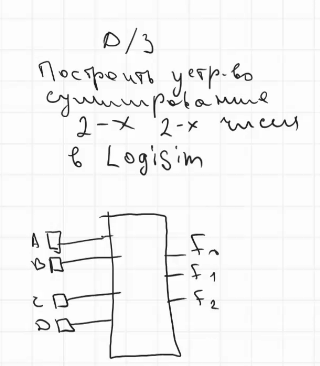 D/З
Построить устр-во
суммирование
2-х 2-х чисел
в Logisim
A
B
C
D
f₀
f₁
f₂